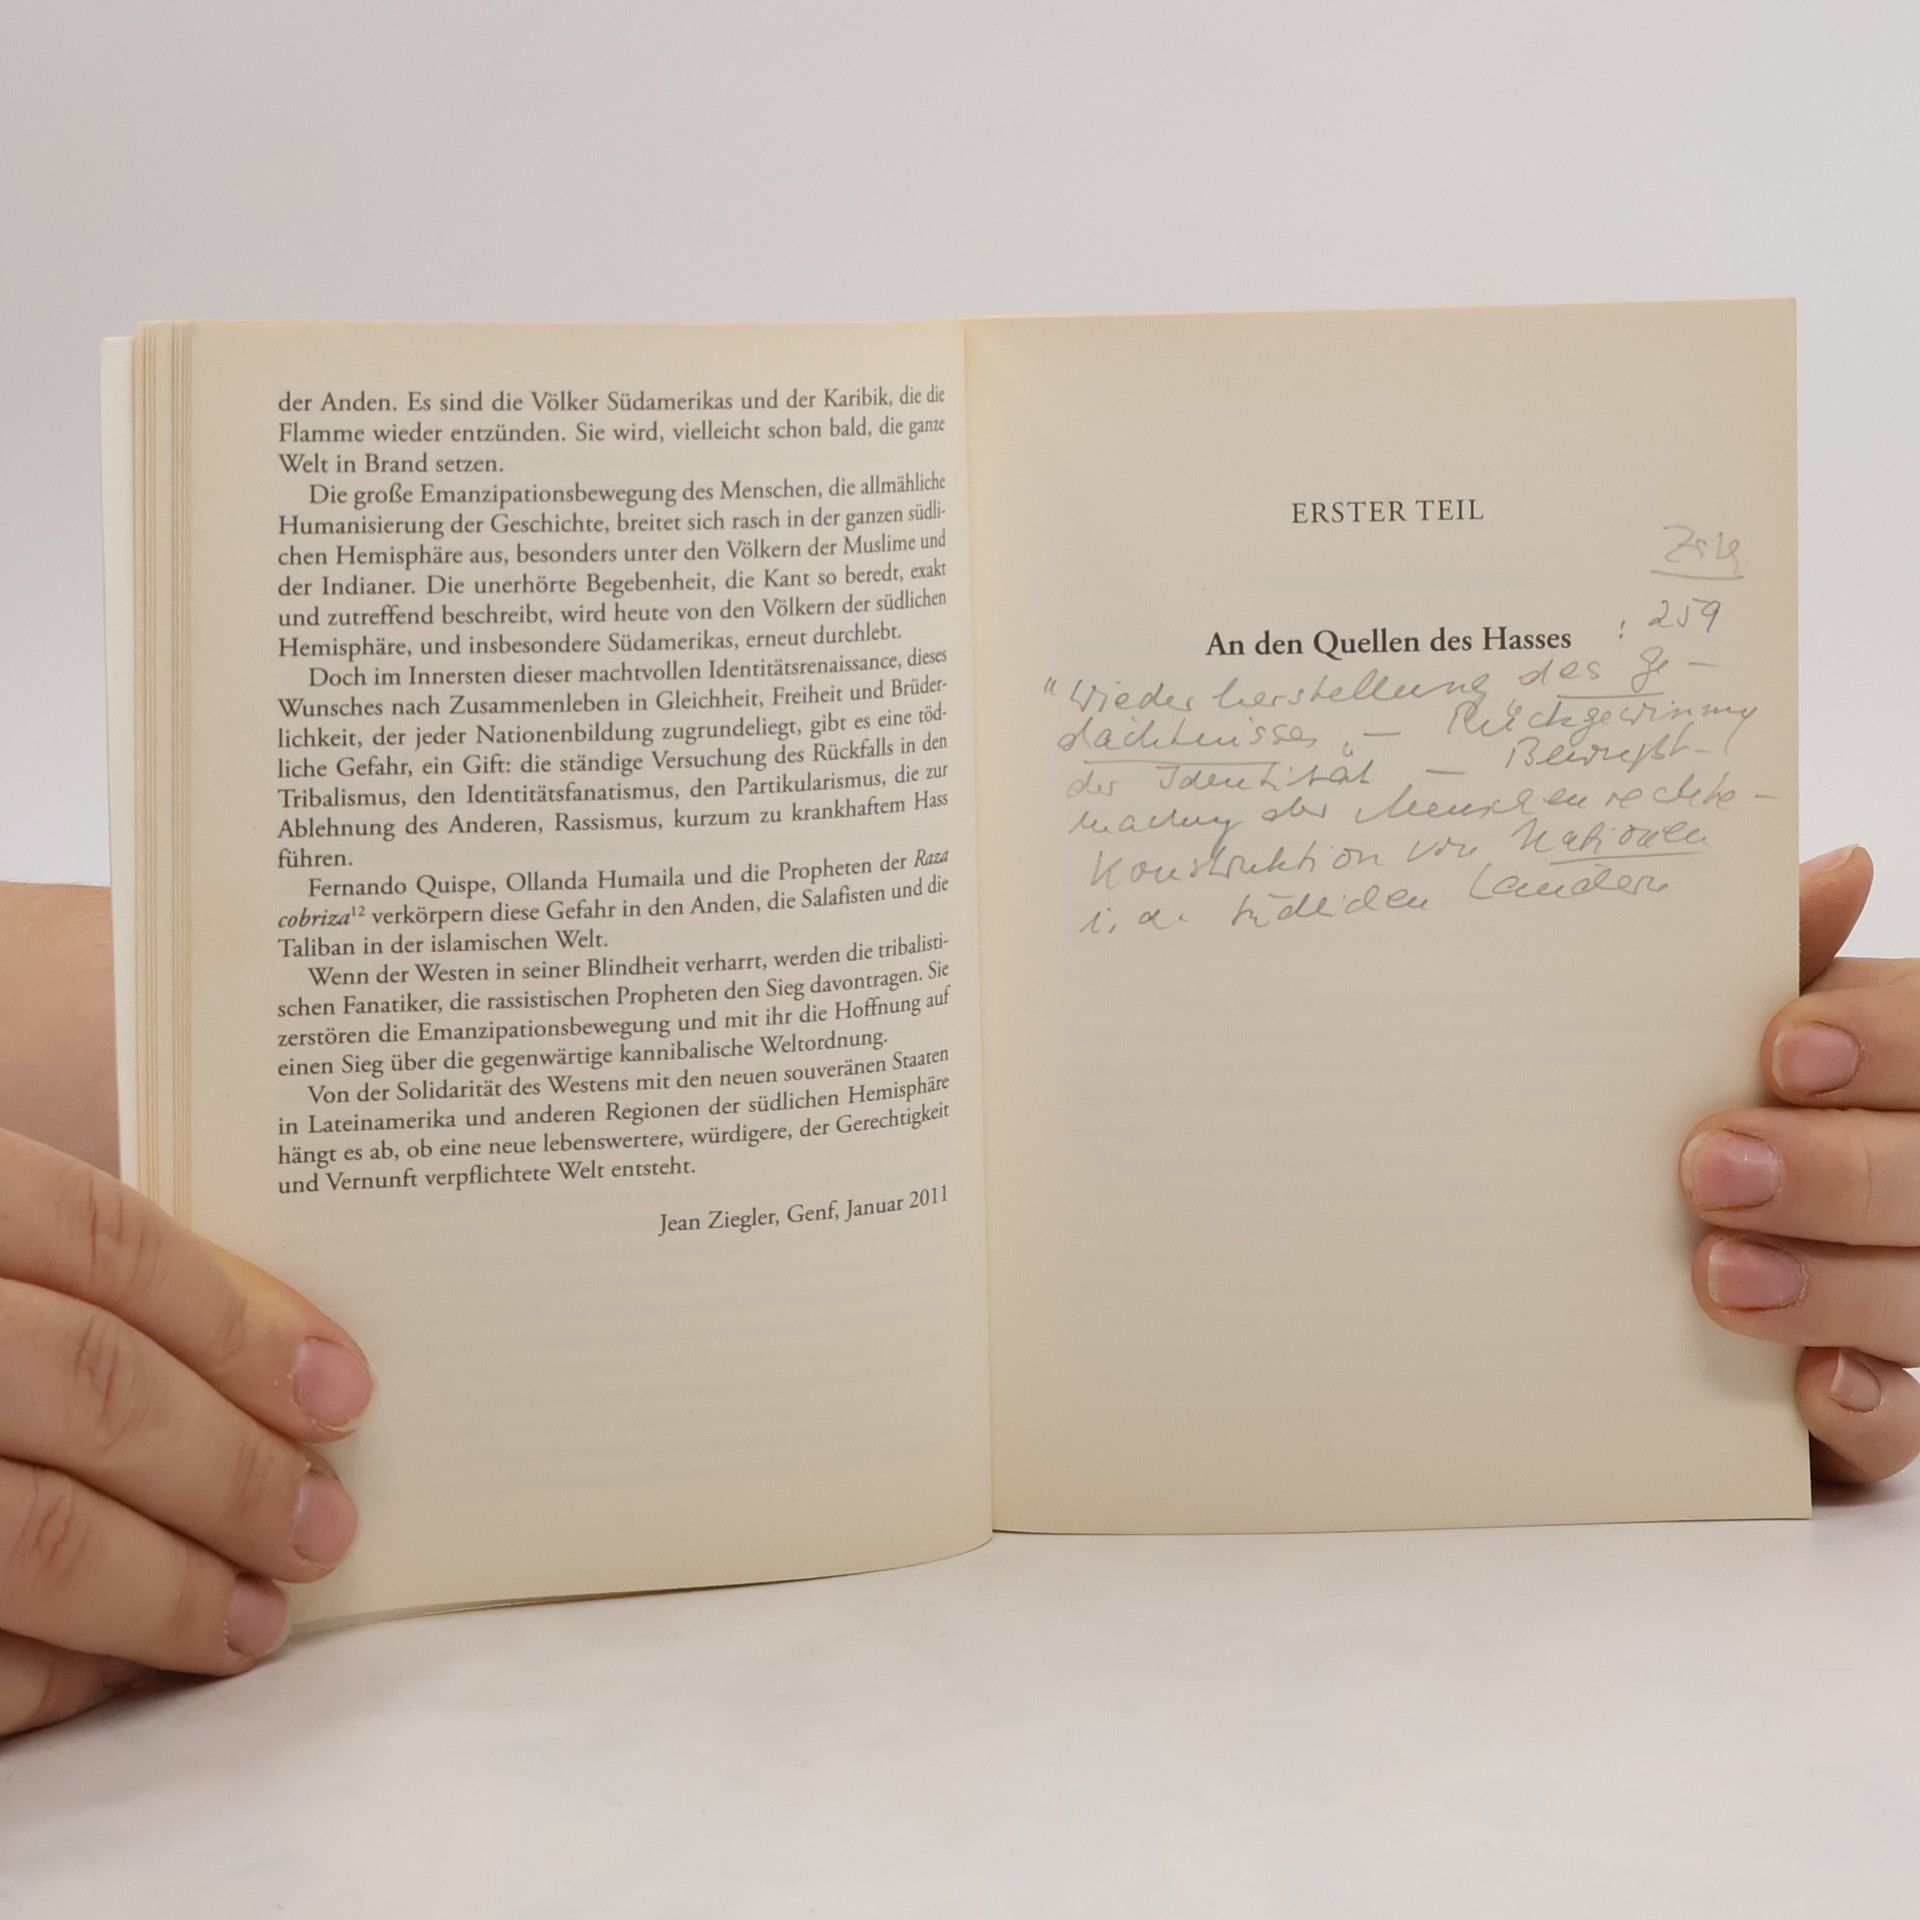 der Anden. Es sind die Völker Südamerikas und der Karibik, die die
Flamme wieder entzünden. Sie wird, vielleicht schon bald, die ganze
Welt in Brand setzen.
Die große Emanzipationsbewegung des Menschen, die allmähliche
Humanisierung der Geschichte, breitet sich rasch in der ganzen südli-
chen Hemisphäre aus, besonders unter den Völkern der Muslime und
der Indianer. Die unerhörte Begebenheit, die Kant so beredt, exakt
und zutreffend beschreibt, wird heute von den Völkern der südlichen
Hemisphäre, und insbesondere Südamerikas, erneut durchlebt.
Doch im Innersten dieser machtvollen Identitätsrenaissance, dieses
Wunsches nach Zusammenleben in Gleichheit, Freiheit und Brüder-
lichkeit, der jeder Nationenbildung zugrundeliegt, gibt es eine töd-
liche Gefahr, ein Gift: die ständige Versuchung des Rückfalls in den
Tribalismus, den Identitätsfanatismus, den Partikularismus, die zur
Ablehnung des Anderen, Rassismus, kurzum zu krankhaftem Hass
führen.
Fernando Quispe, Ollanda Humaila und die Propheten der Raza
cobriza¹² verkörpern diese Gefahr in den Anden, die Salafisten und die
Taliban in der islamischen Welt.
Wenn der Westen in seiner Blindheit verharrt, werden die tribalisti-
schen Fanatiker, die rassistischen Propheten den Sieg davontragen. Sie
zerstören die Emanzipationsbewegung und mit ihr die Hoffnung auf
einen Sieg über die gegenwärtige kannibalische Weltordnung.
Von der Solidarität des Westens mit den neuen souveränen Staaten
in Lateinamerika und anderen Regionen der südlichen Hemisphäre
hängt es ab, ob eine neue lebenswertere, würdigere, der Gerechtigkeit
und Vernunft verpflichtete Welt entsteht.
Jean Ziegler, Genf, Januar 2011
ERSTER TEIL
: 259
An den Quellen des Hasses
"Wiederherstellung des Ge-
dächtnisses" - Rückgewinnung
der Identität - Bewußt-
machung der Menschenrechte -
Konstruktion von Nationen
i. d. südlichen Ländern